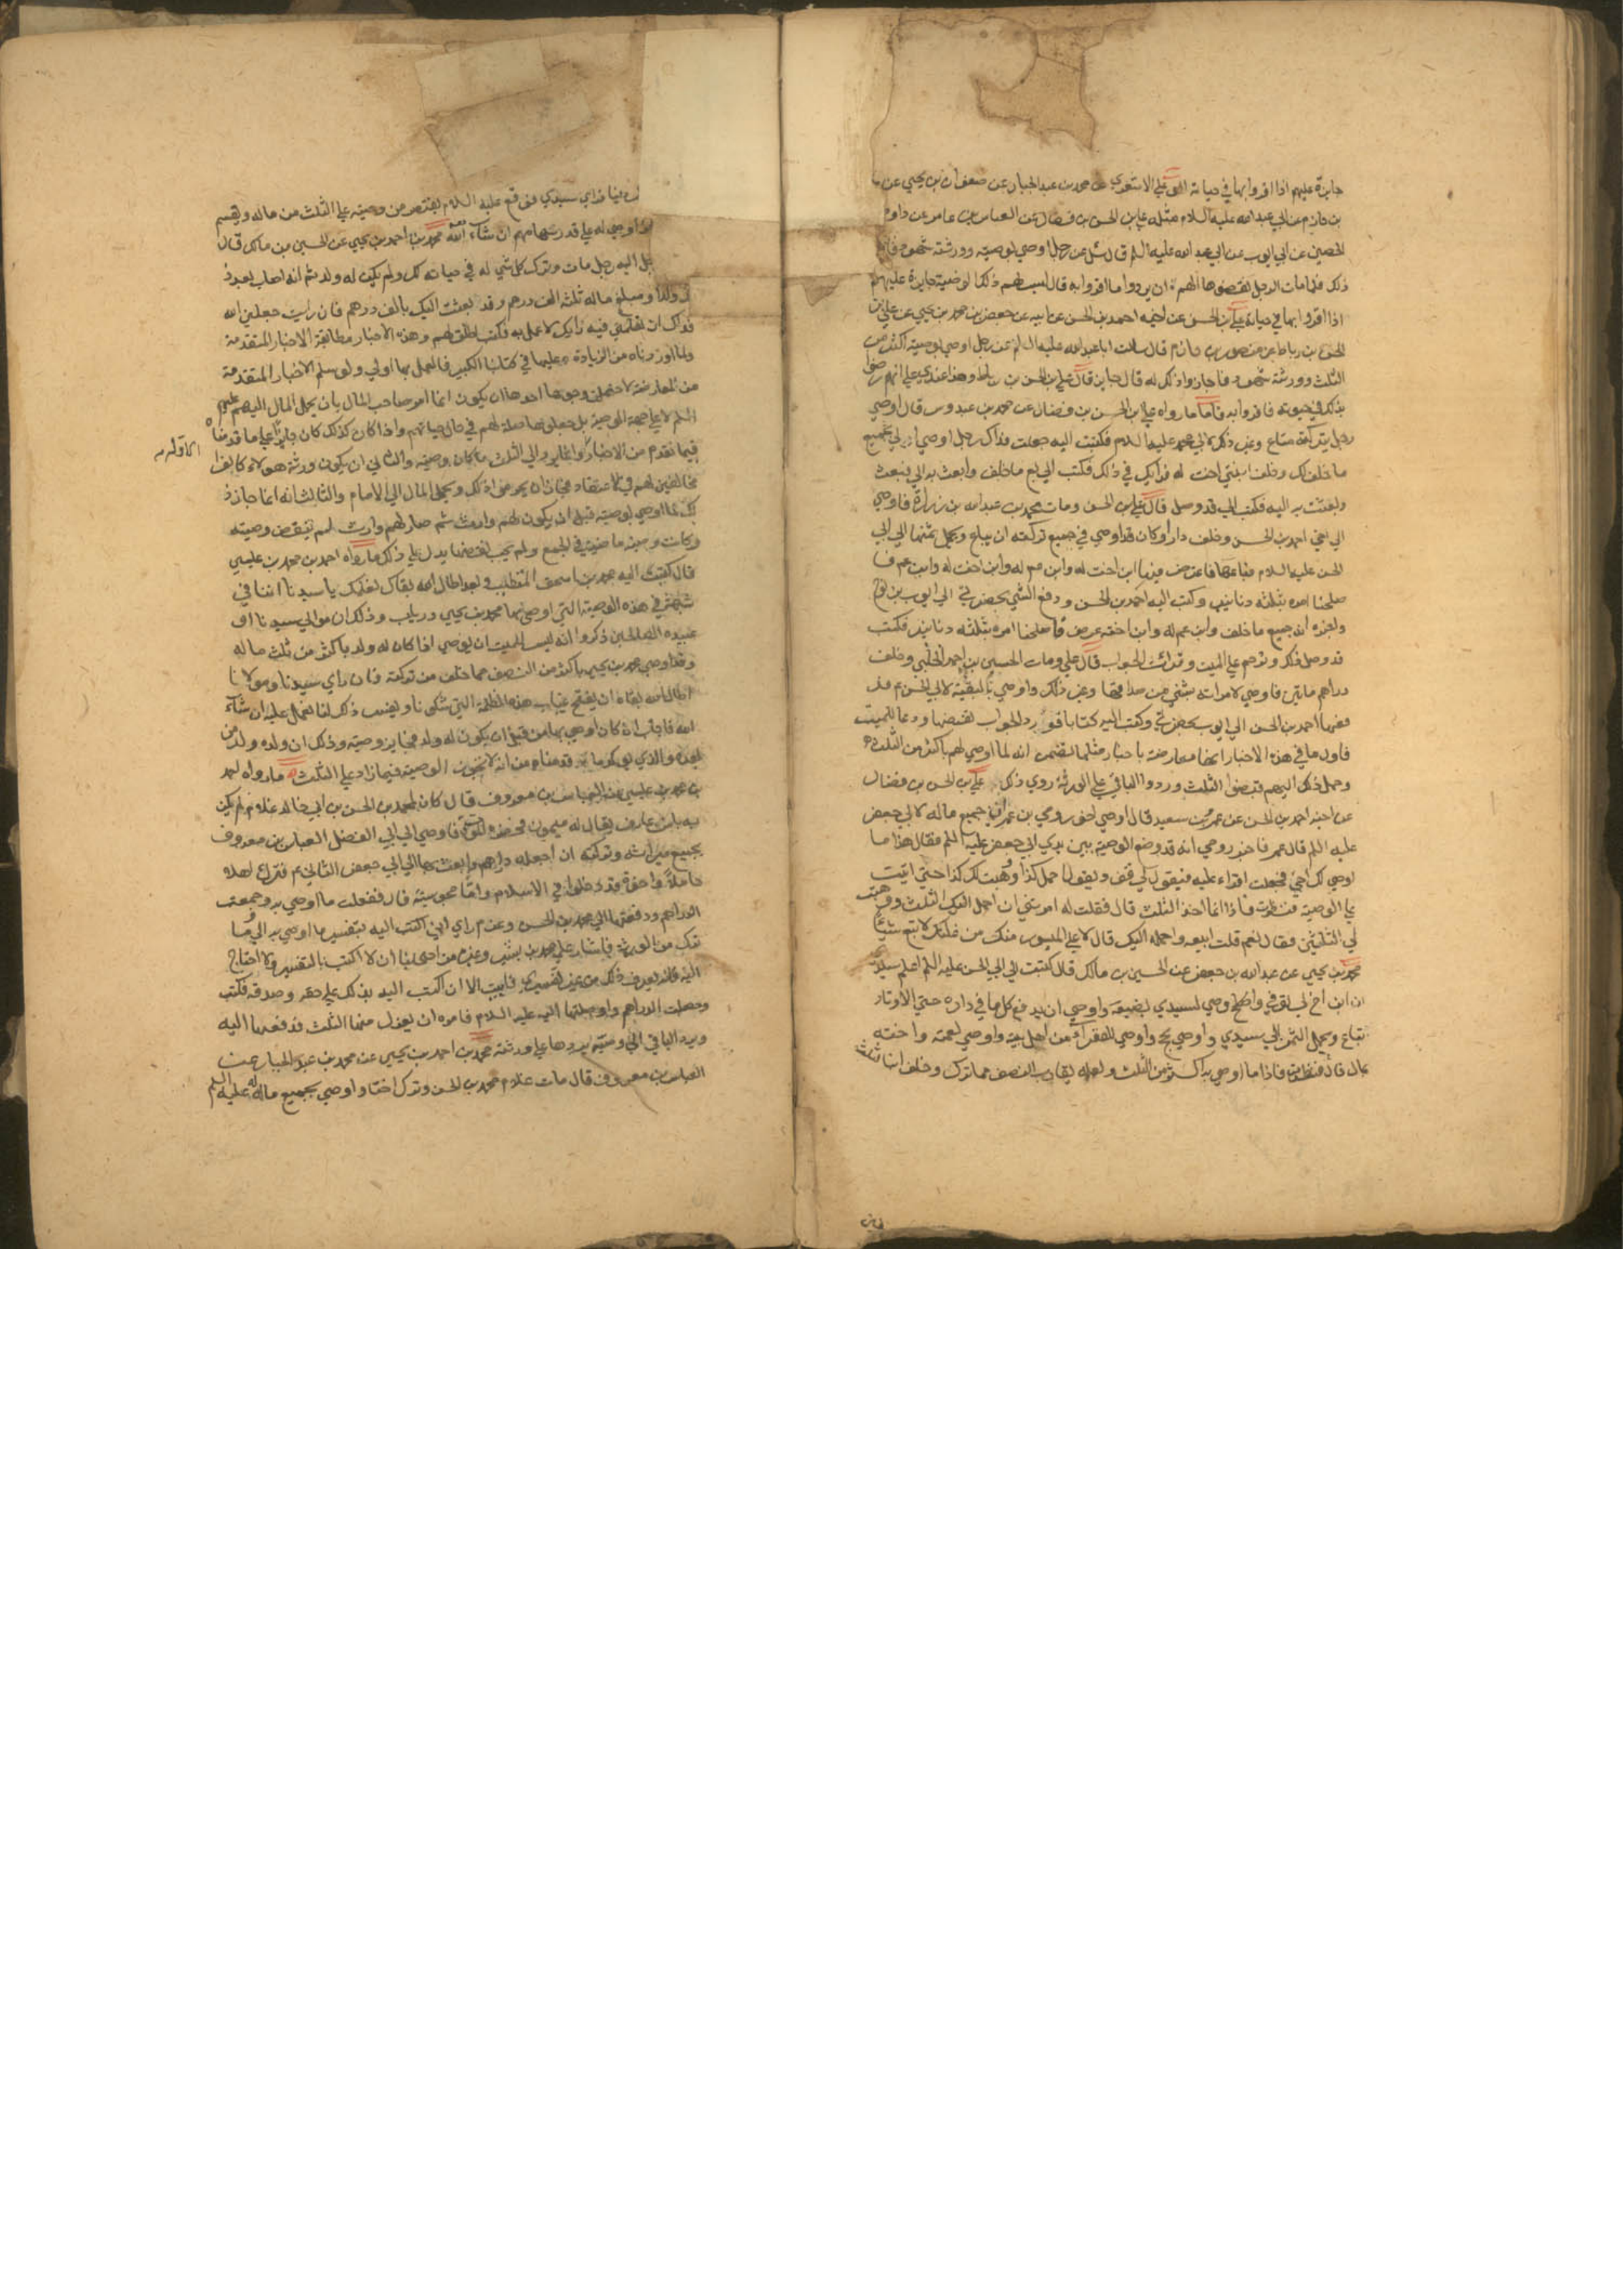 جايزة عليهم اذا اقروا بها في حياته ابو علي الاشعري عن محمد بن عبد الجبار عن صفوان بن يحيي عن
بن حازم عن ابي عبد الله عليه السلام مثله علي بن الحسن بن فضال عن العباس بن عامر عن داود
الحصين عن ابي ايوب عن ابي عبد الله عليه السلم قال سئل عن رجل اوصي بوصية وورثته شهود فاجازوا
ذلك فلما مات الرجل نقضوها الهم ان يردوا ما اقروا به قال ليس لهم ذلك الوصية جايزة عليهم
اذا اقروا بها في حياته علي بن الحسن عن اخيه احمد بن الحسن عن ابيه عن جعفر بن محمد بن يحيي عن علي بن
الحسن بن رباط عن منصور بن حازم قال سالت ابا عبد الله عليه السلم عن رجل اوصي بوصية اكثر من
الثلث وورثته شهود فاجازوا ذلك له قال جايز قال علي بن الحسن بن رباط وهذا عندي علي انهم رضوا
بذلك في حيوته فاقروا به فاما ما رواه علي بن الحسن بن فضال عن محمد بن عبدوس قال اوصي
رجل بتركته متاع وغير ذلك لابي محمد عليه السلام فكتبت اليه جعلت فداك رجل اوصي الي بجميع
ما خلف لك وخلف ابنتي اخت له فرايك في ذلك فكتب الي بع ما خلف وابعث به الي فبعت
وبعثت به اليه فكتب الي قد وصل قال علي بن الحسن ومات محمد بن عبد الله بن زرارة فاوصي
الي اخي احمد بن الحسن وخلف دارا وكان قد اوصي في جميع تركته ان يباع ويحمل ثمنها الي ابي
الحسن عليه السلام فباعها فاعترض فيها ابن اخت له وابن عم له وابن اخت له وابن عم فا
صلحنا امره بثلثه دنانير وكتب اليه احمد بن الحسن ودفع الشي بحضرتي الي ايوب بن نوح
واخبره انه جميع ما خلف وابن عم له وابن اخته عرض فاصلحنا امره بثلثه دنانير فكتب
قد وصل ذلك وترحم علي الميت وقرات الجواب قال علي ومات الحسين بن احمد الحلبي وخلف
دراهم مايتين فاوصي لامراته بشي من صداقها وغير ذلك واوصي بالبقية لابي الحسن ع فد
فعها احمد بن الحسن الي ايوب بحضرتي وكتب اليه كتابا فورد الجواب بقبضها ودعا للميت
فاول ما في هذه الاخبار انها معارضة باخبار مثلها تتضمن انه لما اوصي لهم باكثر من الثلث
وحمل ذلك اليهم قبضوا الثلث وردوا الباقي علي الورثة روي ذلك علي بن الحسن بن فضال
عن اخيه احمد بن الحسن عن عمرو بن سعيد قال اوصي اخو رومي بن عمران جميع ماله لابي جعفر
عليه السلم قال عمرو فاخبر رومي انه قد وضع الوصية بين يدي ابي جعفر عليه السلم فقال هذا ما
اوصي لك اخي فجعلت اقراء عليه فيقول لي قف ويقول احمل كذا ووهبت لك كذا حتي اتيت
علي الوصية فنظرت فاذا انما اخذ الثلث قال فقلت له امرتني ان احمل اليك الثلث ووهبت
لي الثلثين فقال نعم قلت ابيعه واحمله اليك قال لا علي الميسور منك من غلتك لا تبع شيئا
محمد بن يحيي عن عبد الله بن جعفر عن الحسين بن مالك قال كتبت الي ابي الحسن عليه السلم اعلم سيدي
ان ابن اخ لي توفي واوصي لسيدي بضيعة واوصي ان يدفع كل ما في داره حتي الاوتار
تباع ويحمل الثمن الي سيدي واوصي بحج واوصي للفقراء من اهل بيته واوصي لعمته واخته
بمال قال فنظرت فاذا ما اوصي به اكثر من الثلث ولعله يقارب النصف مما ترك وخلف ابنا لثلث
فراي سيدي فوقع عليه السلام يقتصر من وصيته علي الثلث من ماله ويقسم
اوصي له علي قدر سهامهم ان شاء الله محمد بن احمد بن يحيي عن الحسين بن مالك قال
اليه رجل مات وترك كل شي له في حياته لك ولم يكن له ولد ثم انه اصاب بعد ذ
ولدا ومبلغ ماله ثلثه الف درهم وقد بعثت اليك بالف درهم فان رايت جعلني الله
فداك ان تعلمني فيه رايك لاعمل به فكتب اطلق لهم وهذه الاخبار مطابقة الاخبار المتقدمة
وما اوردناه من الزيادة عليها في كتابنا الكبير فالعمل بها اولي ولو سلم الاخبار المتقدمة
من المعارضة لاحتملت وجوها احدها ان يكون انما امر صاحب المال بان يحمل المال اليهم عليهم
السلم لا علي جهة الوصية بل جعلوها صلة لهم في حال حياتهم واذا كان كذلك كان جايزا علي ما قدمناه
فيما تقدم من الاخبار وانما يرد الي الثلث ما كان وصية والثاني ان يكون ورثة هولاء كانوا
مخالفين لهم في الاعتقاد فجاز ان يحرموا ذلك ويحمل المال الي الامام والثالث انه انما جاز ذ
لك لما اوصي بوصية قبل ان يكون لهم وارث ثم صار لهم وارث لم تنقض وصيته
وكانت وصيته ماضية في الجميع ولم يجب نقضها يدل علي ذلك ما رواه احمد بن محمد بن عيسي
قال كتبت اليه محمد بن اسحق المتطبب وبعد اطال الله بقاك نعلمك يا سيدنا اننا في
شبهة في هذه الوصية التي اوصي بها محمد بن يحيي درياب وذلك ان موالي سيدنا او
عبيده الصالحين ذكروا انه ليس للميت ان يوصي اذا كان له ولد باكثر من ثلث ماله
وقد اوصي محمد بن يحيي باكثر من النصف مما خلف من تركته فان راي سيدنا ومولانا
اطال الله بقاه ان يفتح غياب هذه الظلمة التي شكونا ويفسر ذلك لنا نعمل عليه ان شاء
الله فاجاب ان كان اوصي بها من قبل ان يكون له ولد فجايز وصيته وذلك ان ولده ولد من
بعده والذي يوكد ما قدمناه من انه لا تجوز الوصية فيما زاد علي الثلث ما رواه احمد
بن محمد بن عيسي عن العباس بن معروف قال كان لمحمد بن الحسن بن ابي خالد غلام لم يكن
به باس عارف يقال له ميمون فحضره الموت فاوصي الي ابي الفضل العباس بن معروف
بجميع ميراثه وتركته ان اجعله دراهم وابعث بها الي ابي جعفر الثاني ع فترك اهلا
حاملا واخوة قد دخلوا في الاسلام واما مجوسية قال ففعلت ما اوصي به وجمعت
الدراهم ودفعتها الي محمد بن الحسن وعزم راي ان اكتب اليه بتفسير ما اوصي به الي وما
ترك من الورثة فاشار علي محمد بن بشير وغيره من اصحابنا ان لا اكتب بالتفسير ولا احتاج
اليه فانه يعرف ذلك من غير تفسيري فابيت الا ان اكتب اليه بذلك علي حقه وصدقه فكتبت
وحصلت الدراهم واوصلتها اليه عليه السلام فامره ان يعزل منها الثلث فدفعها اليه
ويرد الباقي الي وصيه يردها علي ورثته محمد بن احمد بن يحيي عن محمد بن عبد الجبار عن
العباس بن معروف قال مات غلام محمد بن الحسن وترك اختا واوصي بجميع ماله له عليه السلم